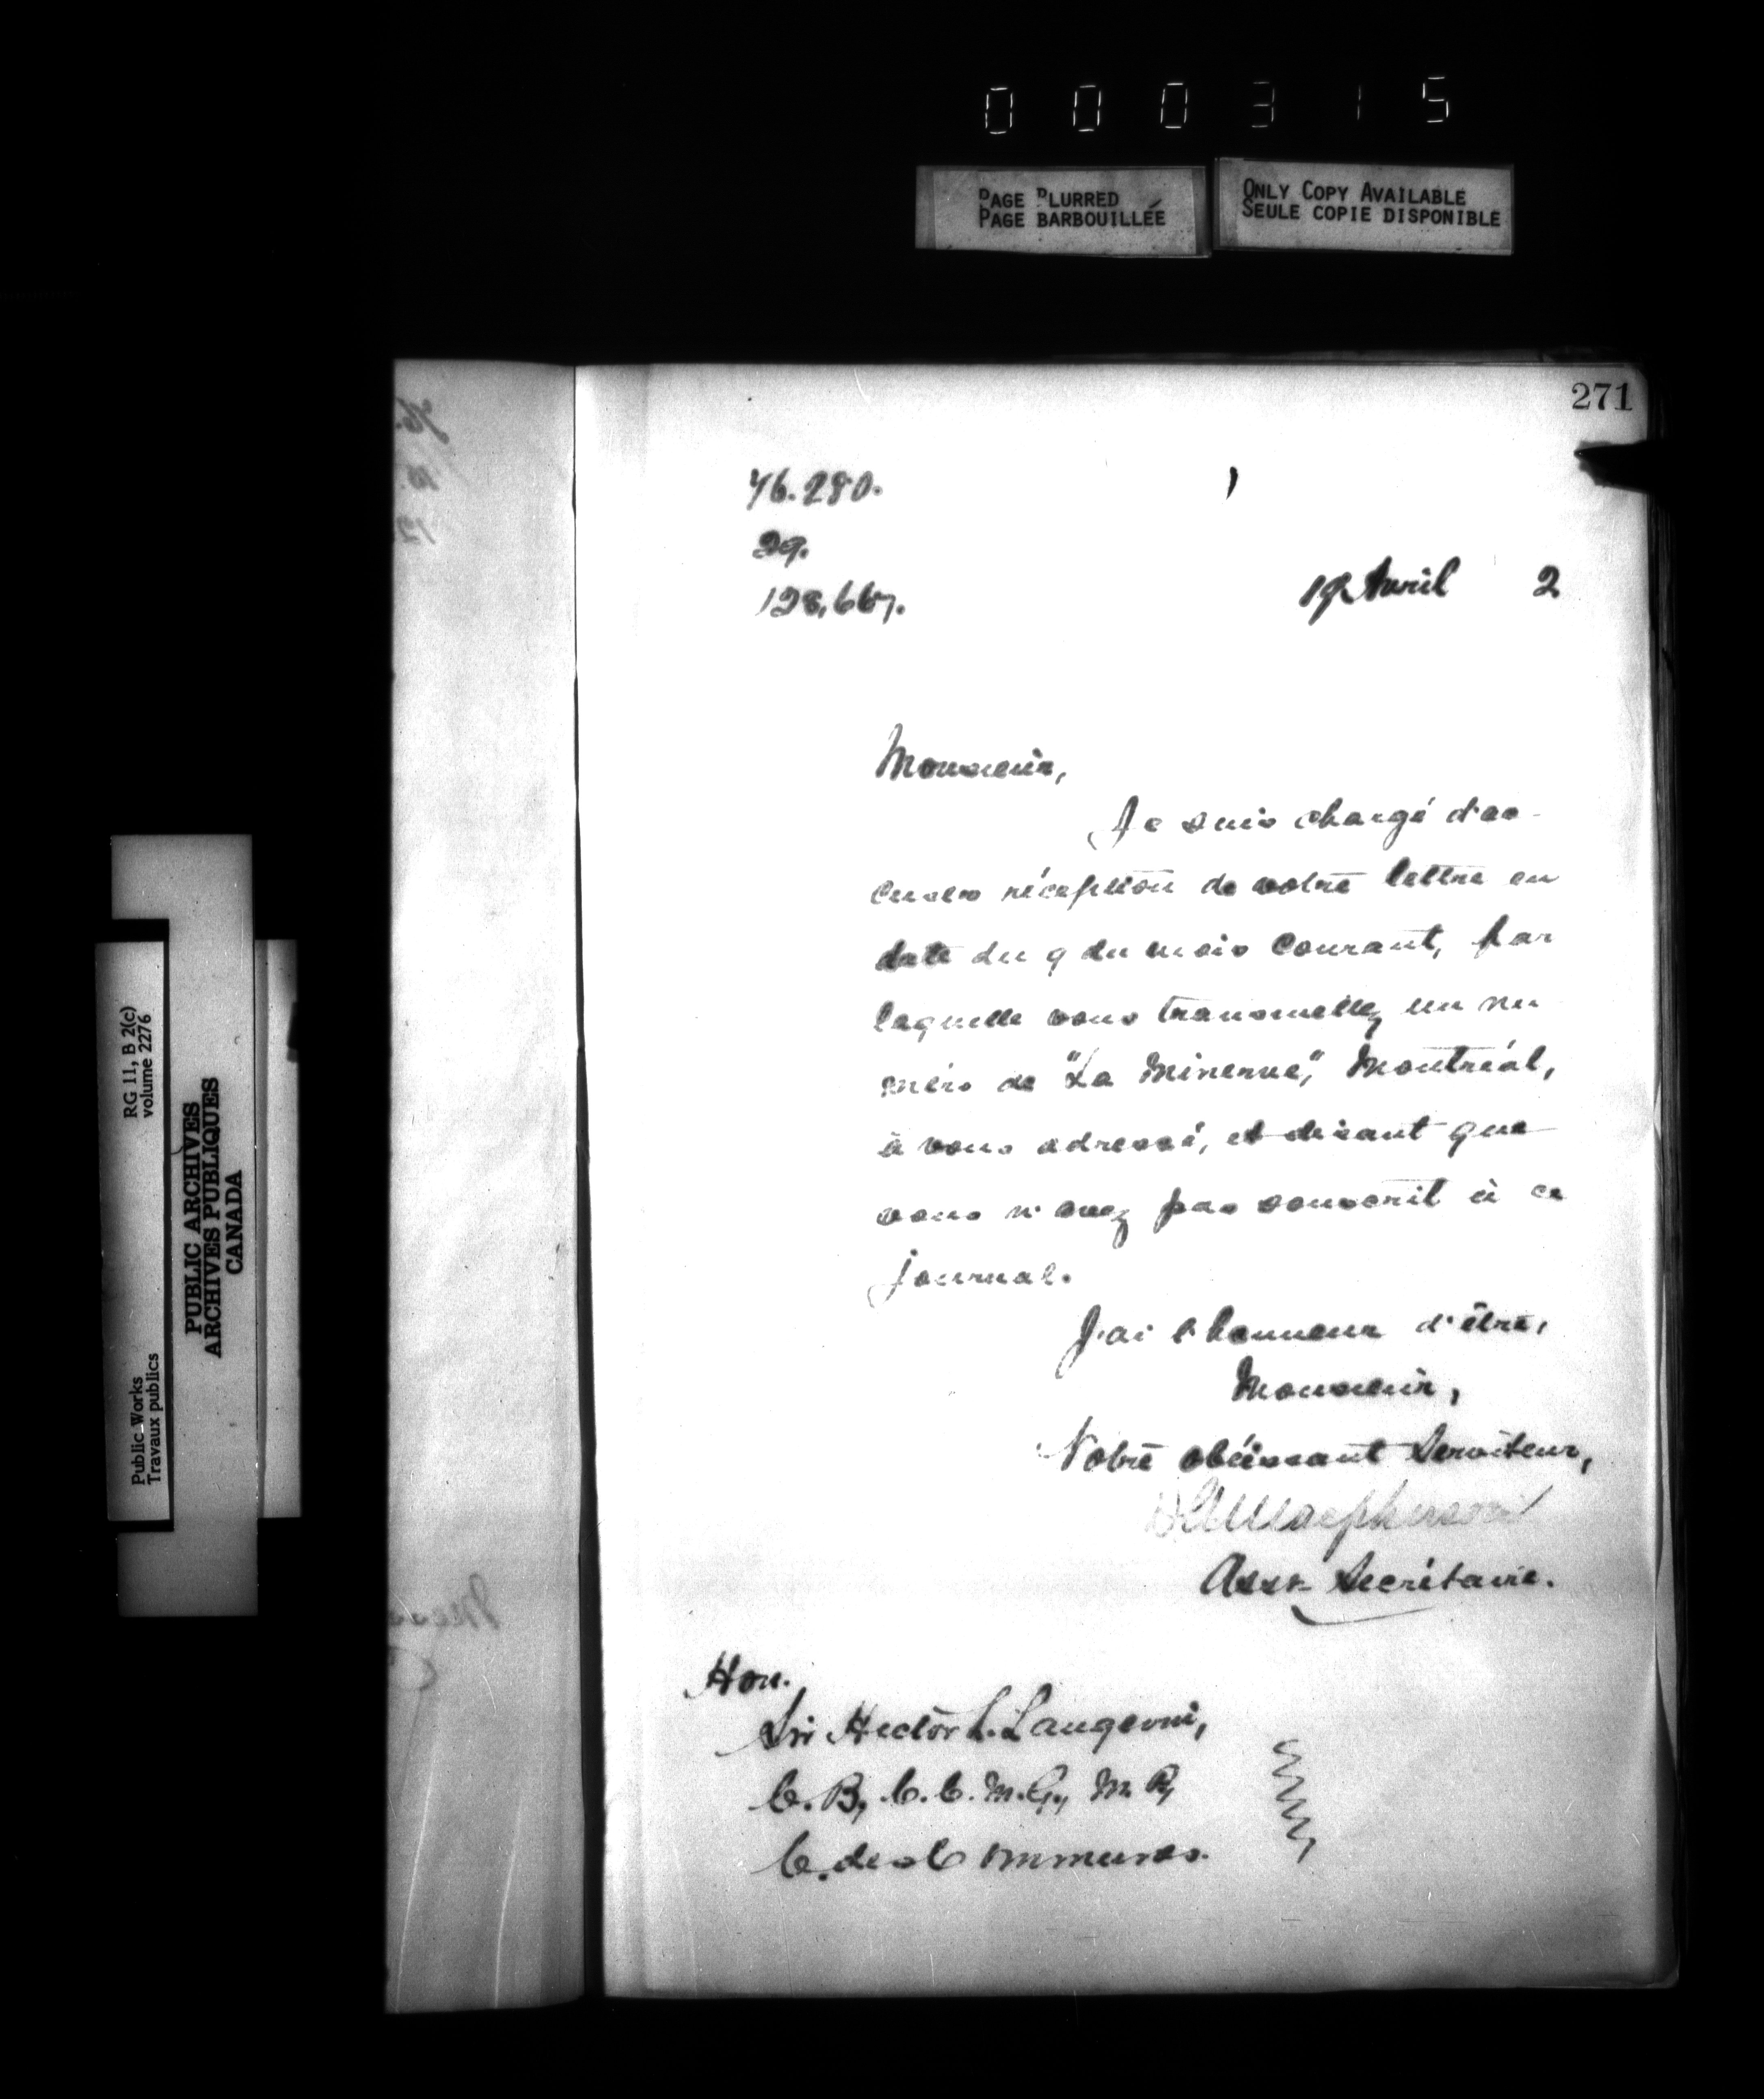 000315
PAGE BLURRED
PAGE BARBOUILLÉE
ONLY COPY AVAILABLE
SEULE COPIE DISPONIBLE
271
76.280.
29.
128,667.
19 Avril 2
Monsieur,
Je suis chargé d'ac-
cuser réception de votre lettre en
date du 9 du mois courant, par
laquelle vous transmettez un nu
méro de "La Minerve," Montréal,
à vous adressé, et disant que
vous n'avez pas souscrit à ce
journal.
J'ai l'honneur d'être,
Monsieur,
Votre obéissant Serviteur,
Macpherson
Asst Secrétaire.
Hon.
Sir Hector L. Langevin,
C.B, C.C.M.G., M.P,
C. des Communes.
RG 11, B 2(c)
volume 2276
PUBLIC ARCHIVES
ARCHIVES PUBLIQUES
CANADA
Public Works
Travaux publics